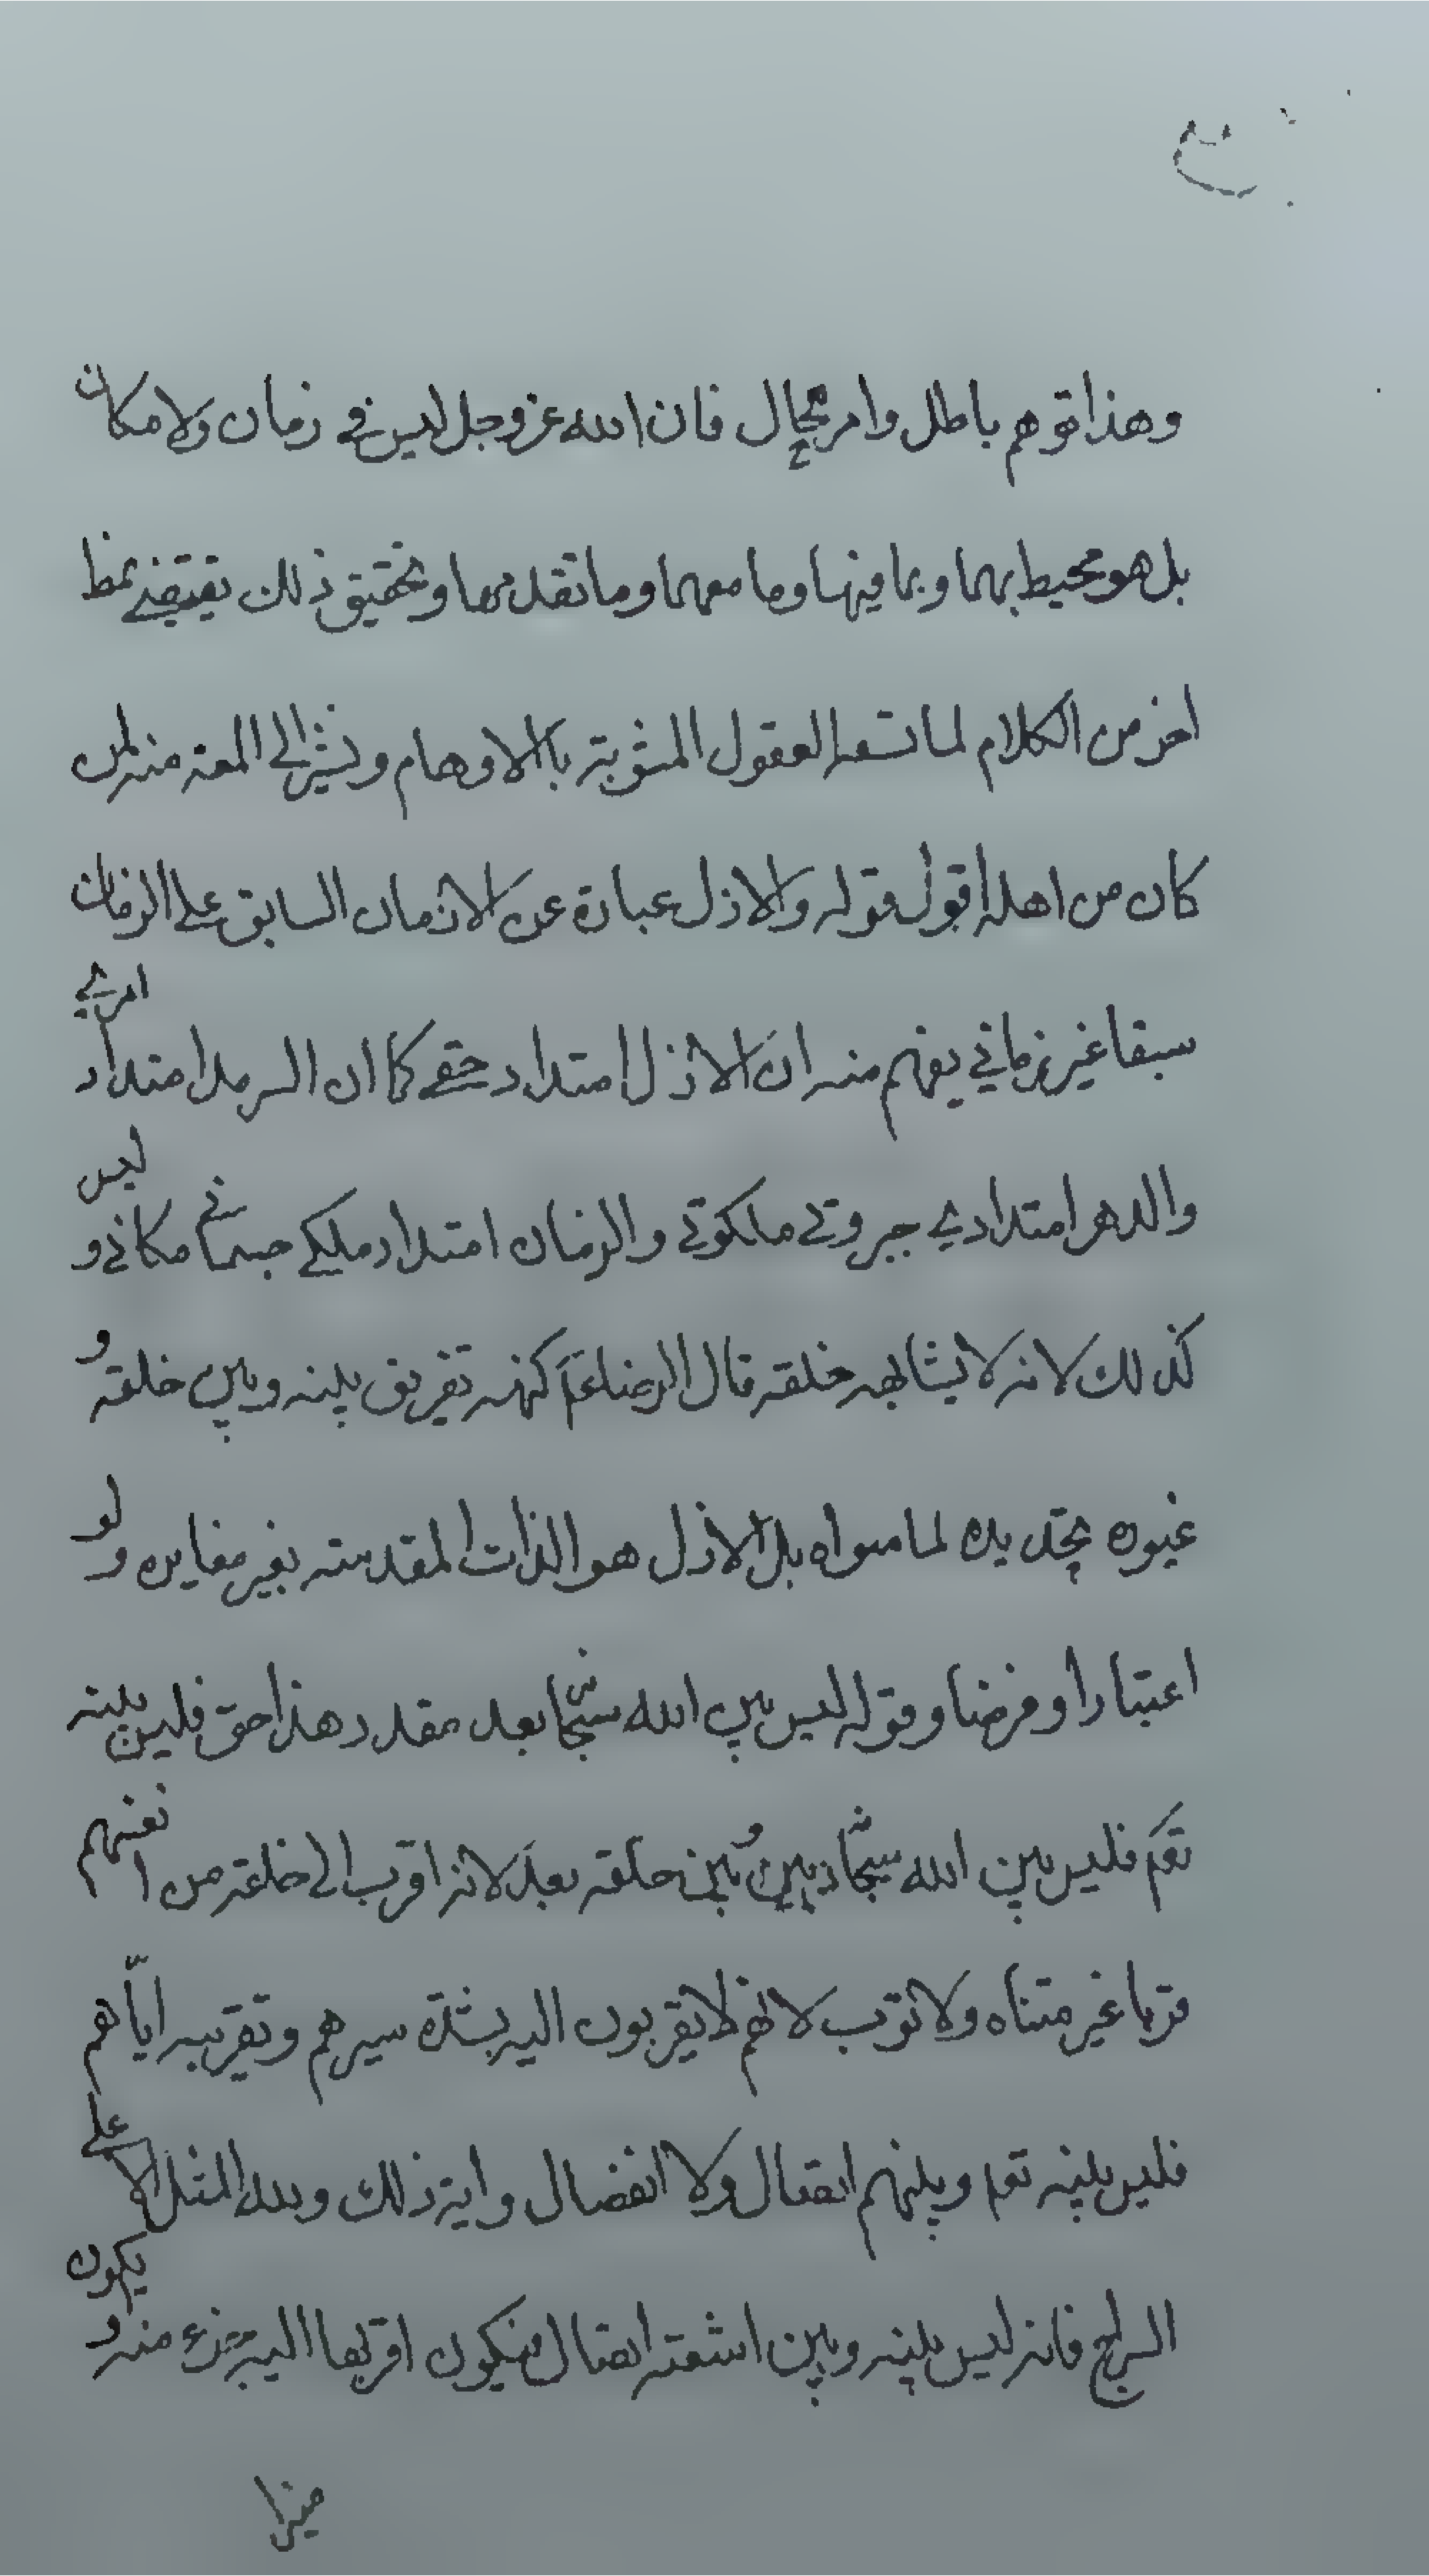 وهذا توهم باطل وامر محال فان الله عز وجل ليس في زمان ولا مكان
بل هو محيط بهما وبما فيهما وما معهما وما تقدمهما وتحقيق ذلك يقتضي نمط
اخر من الكلام لما تسعه العقول المشوبة بالاوهام ونشير الى لمعة منه لمن
كان من اهله اقول قوله والازل عبارة عن الازمان السابق على الزمان
سبقا غير زماني يفهم منه ان الازل امتداد حقي كما ان السرمد امتداد امري
والدهر امتدادي جبروتي ملكوتي والزمان امتداد ملكي جسماني مكاني وليس
كذلك لانه لا يشابهه خلقه قال الرضا ع كنهه تفريق بينه وبين خلقه و
غيوره تحديده لما سواه بل الازل هو الذات المقدسة بغير مغايره ولو
اعتبارا وفرضا وقوله ليس بين الله سبحانه بعد مقدر هذا حق فليس بينه
تعم فليس بين الله سبحانه وبين خلقه بعد لانه اقرب الى خلقه من انفسهم
قربا غير متناه ولا قرب لانهم لا يقربون اليه بشدة سيرهم وتقريبه اياهم
فليس بينه تعم وبينهم اتصال ولا انفصال واية ذلك ولله المثل الاعلى
السراج فانه ليس بينه وبين اشعته اتصال فيكون اقربها اليه جزء منه ويكون
منيرا